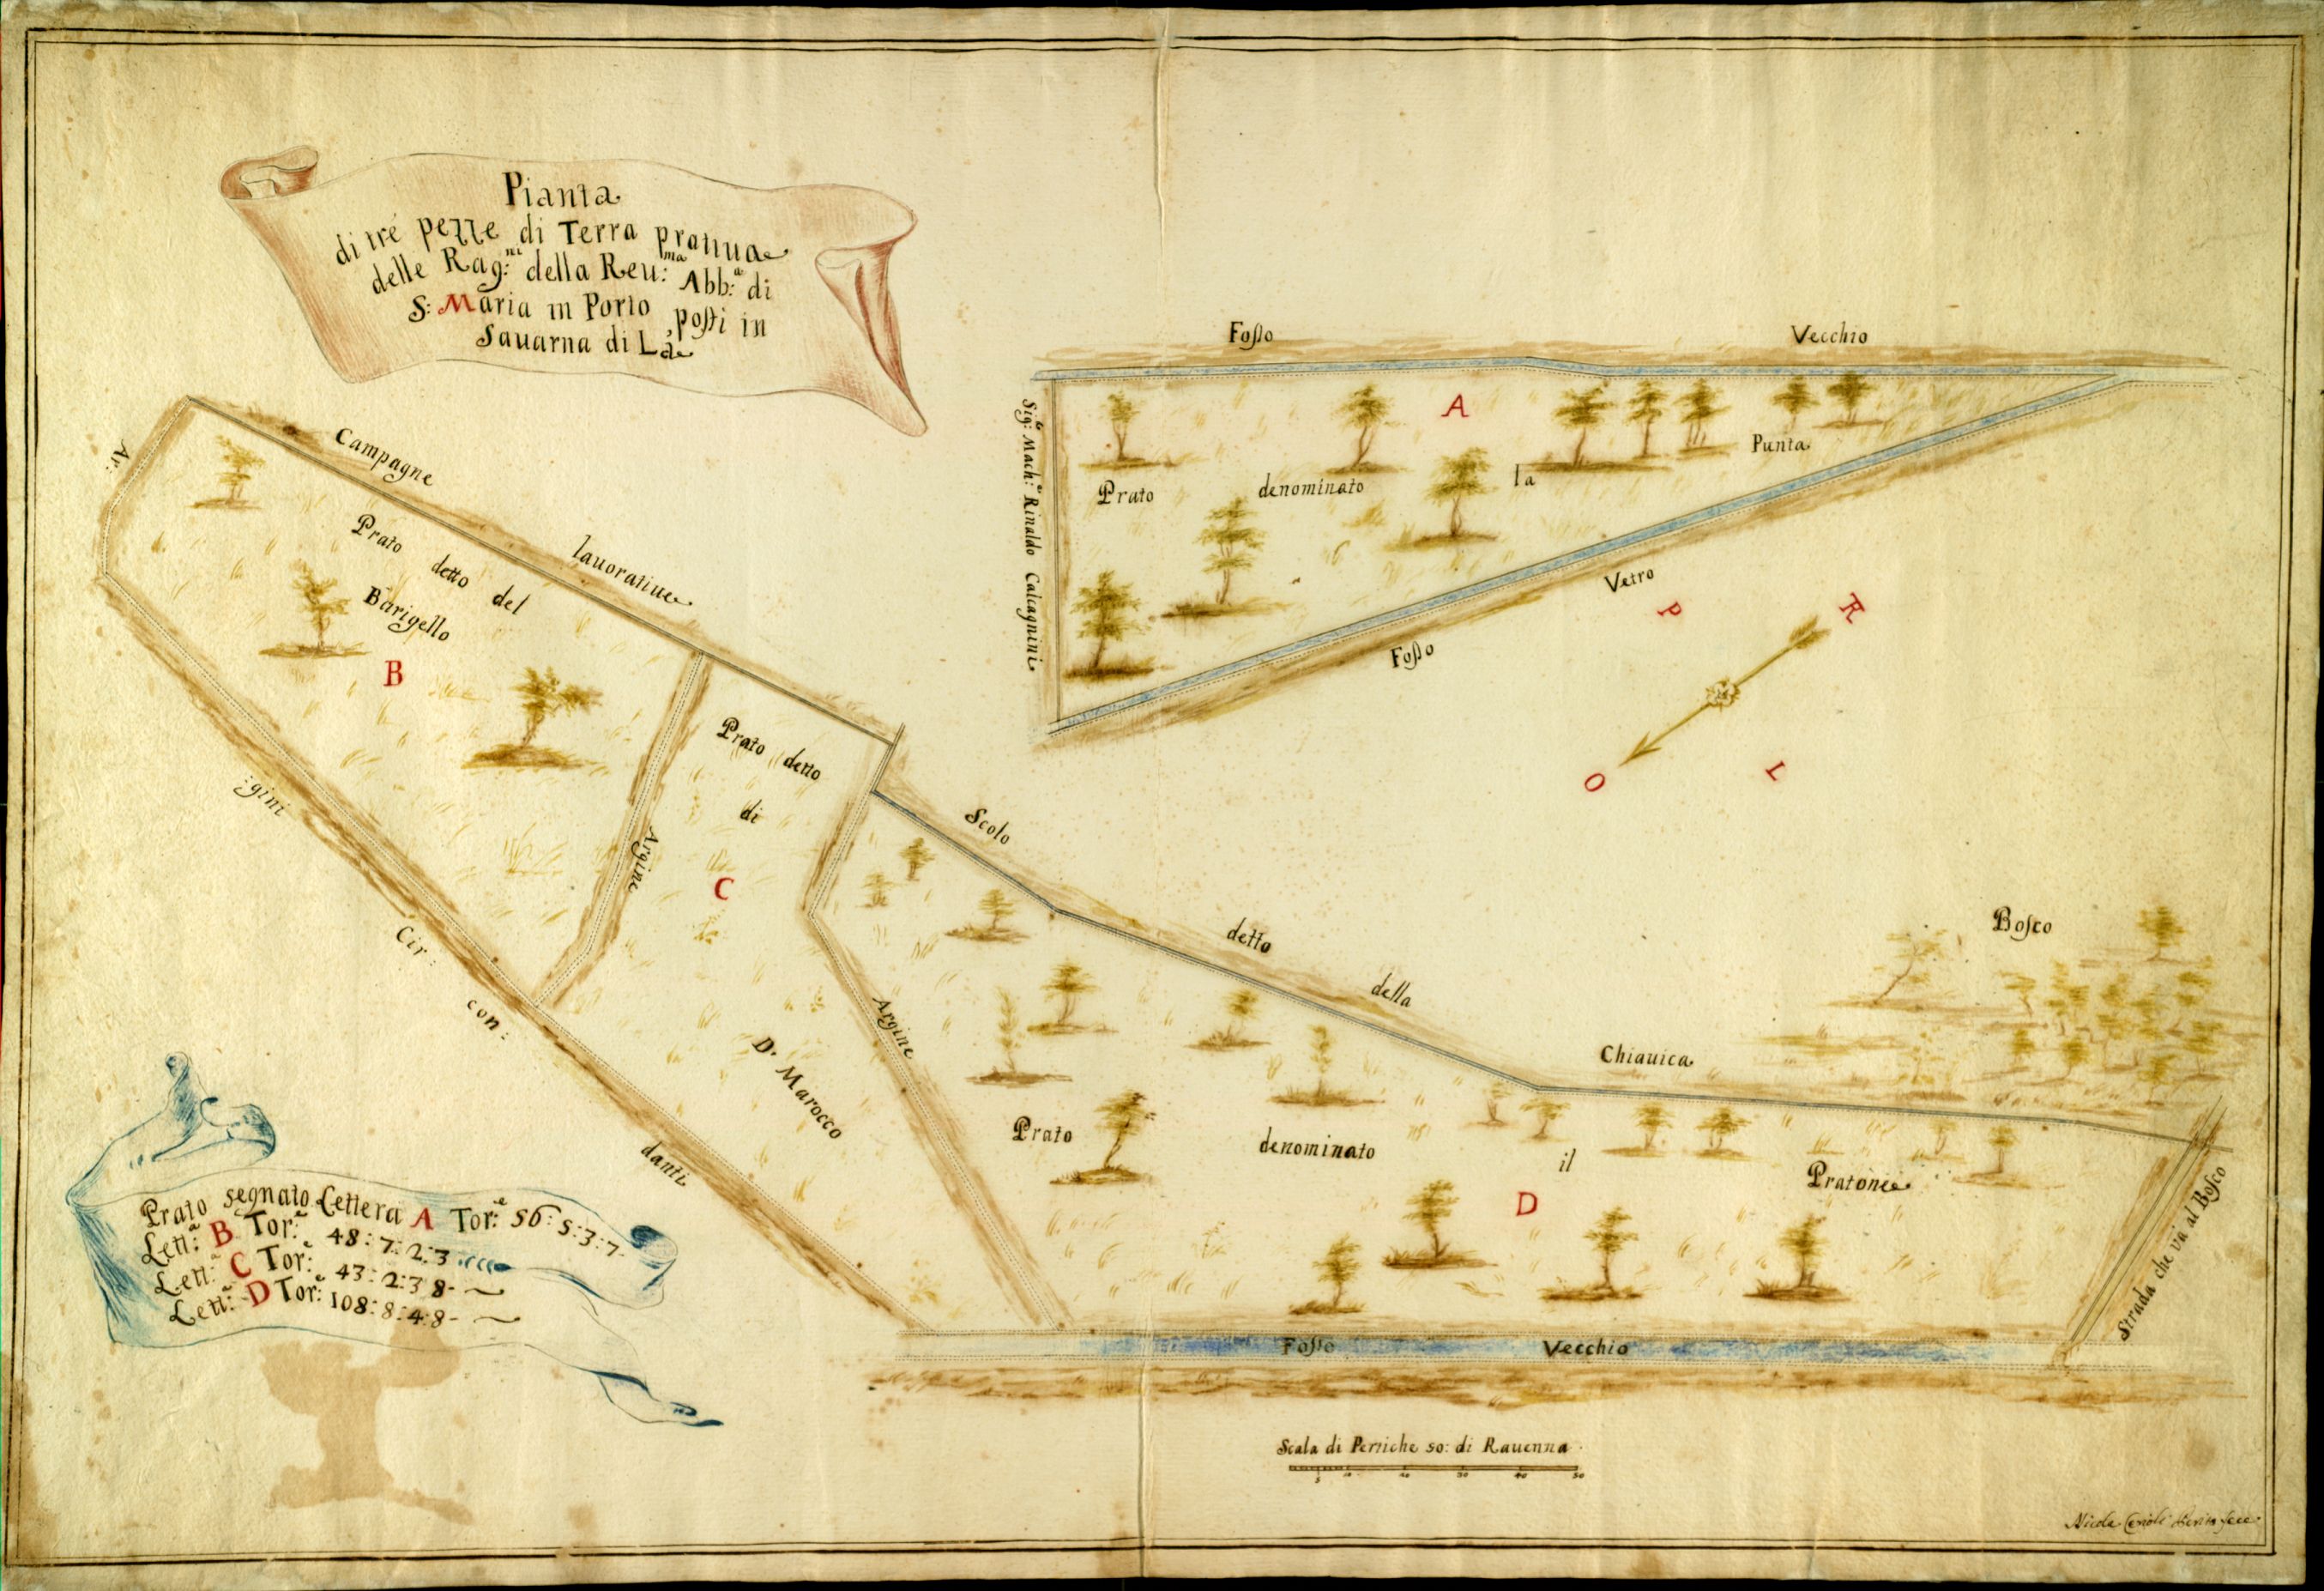 Pianta
di tré pezze di Terra pratiua
delle Rag:ni della Reu:ma Abb:a di
S: Maria in Porto, posti in
Sauarna di Là
Fosso Vecchio
A
Sig:r Mach:e Rinaldo Calcagnini
Prato denominato la Punta
Fosso Vetro
P
R
O
L
Campagne lauoratiue
Prato detto del
Barigello
B
Ar:
gini
Cir:
con:
danti
Argine
Prato detto
di
C
D. Marocco
Argine
Scolo detto della Chiauica
Bosco
Prato denominato il Pratone
D
Strada che và al Bosco
Fosso Vecchio
Prato segnato Lettera A Tor:e 56: 5: 3: 7-
Lett:a B Tor:e 48: 7: 2: 3
Lett:a C Tor:e 43: 2: 3 8-
Lett:a D Tor:e 108: 8: 4: 8-
Scala di Pertiche 50: di Rauenna
5 10 20 30 40 50
Nicola